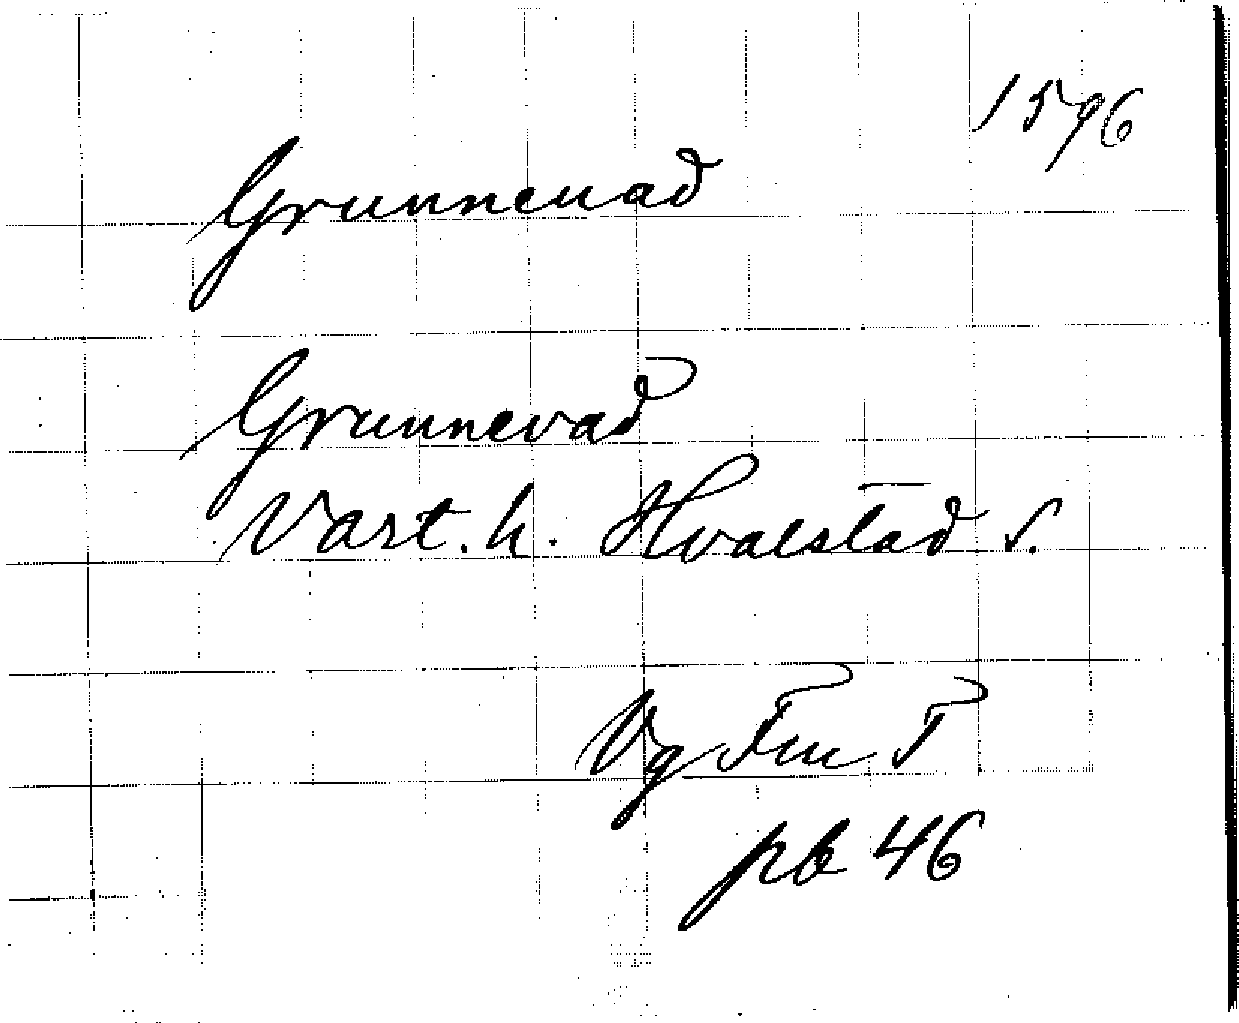 1596
Grunneuad
Grunnevad
Vart. h. Hvalstad s.
Vg Fru T
pb 46